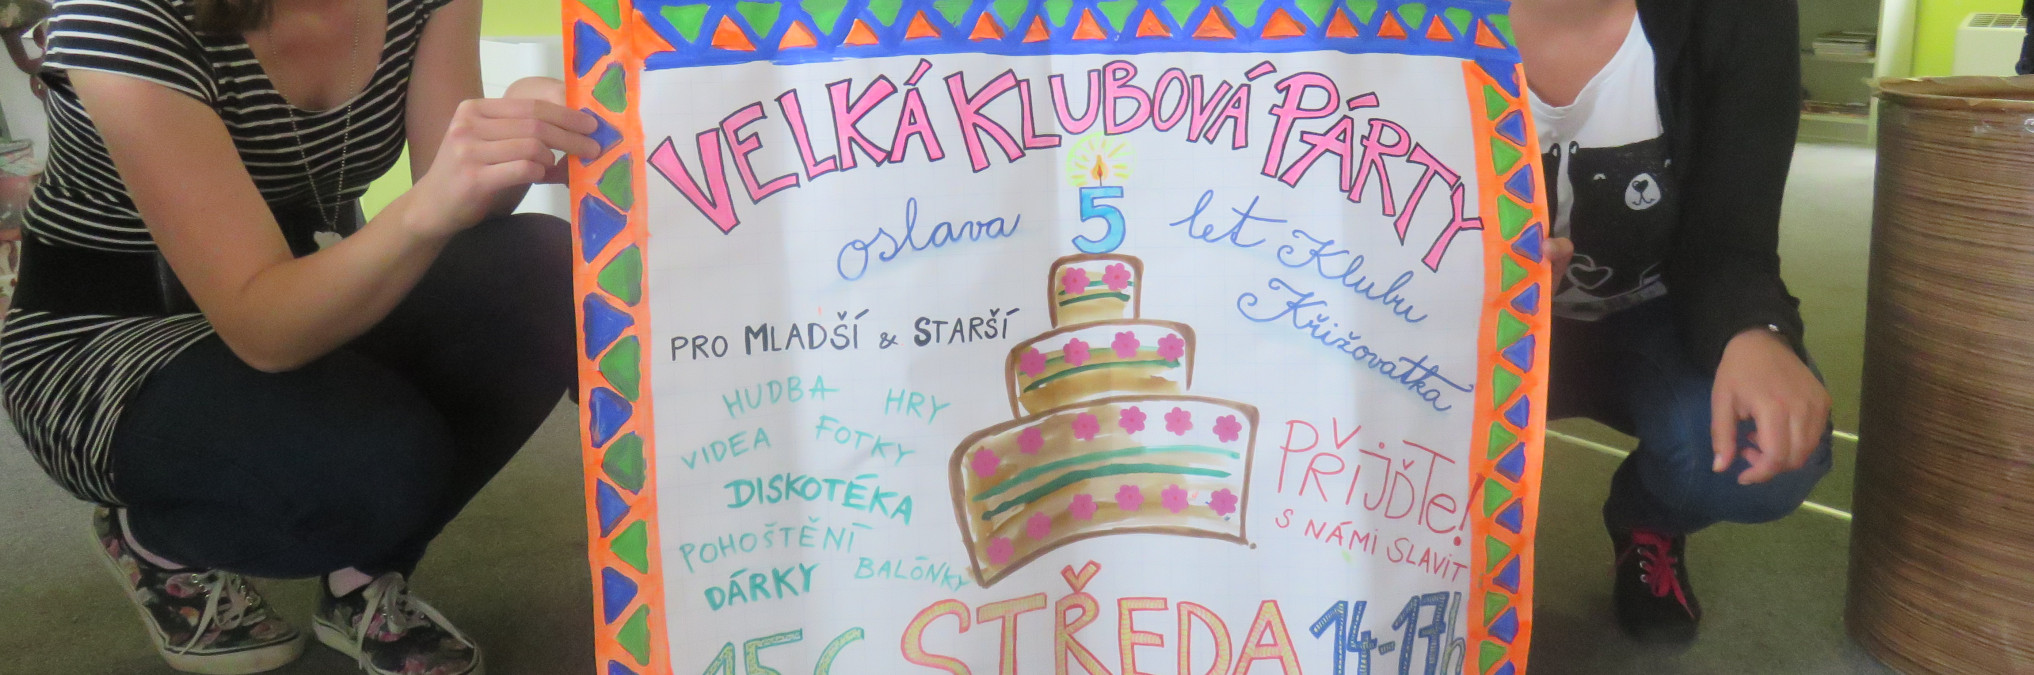 VELKÁ KLUBOVÁ PÁRTY
oslava 5 let Klubu
Křižovatka
PRO MLADŠÍ & STARŠÍ
HUDBA HRY
VIDEA FOTKY
DISKOTÉKA
POHOŠTĚNÍ
DÁRKY BALÓNKY
PŘIJĎTE!
S NÁMI SLAVIT
STŘEDA 14-17h